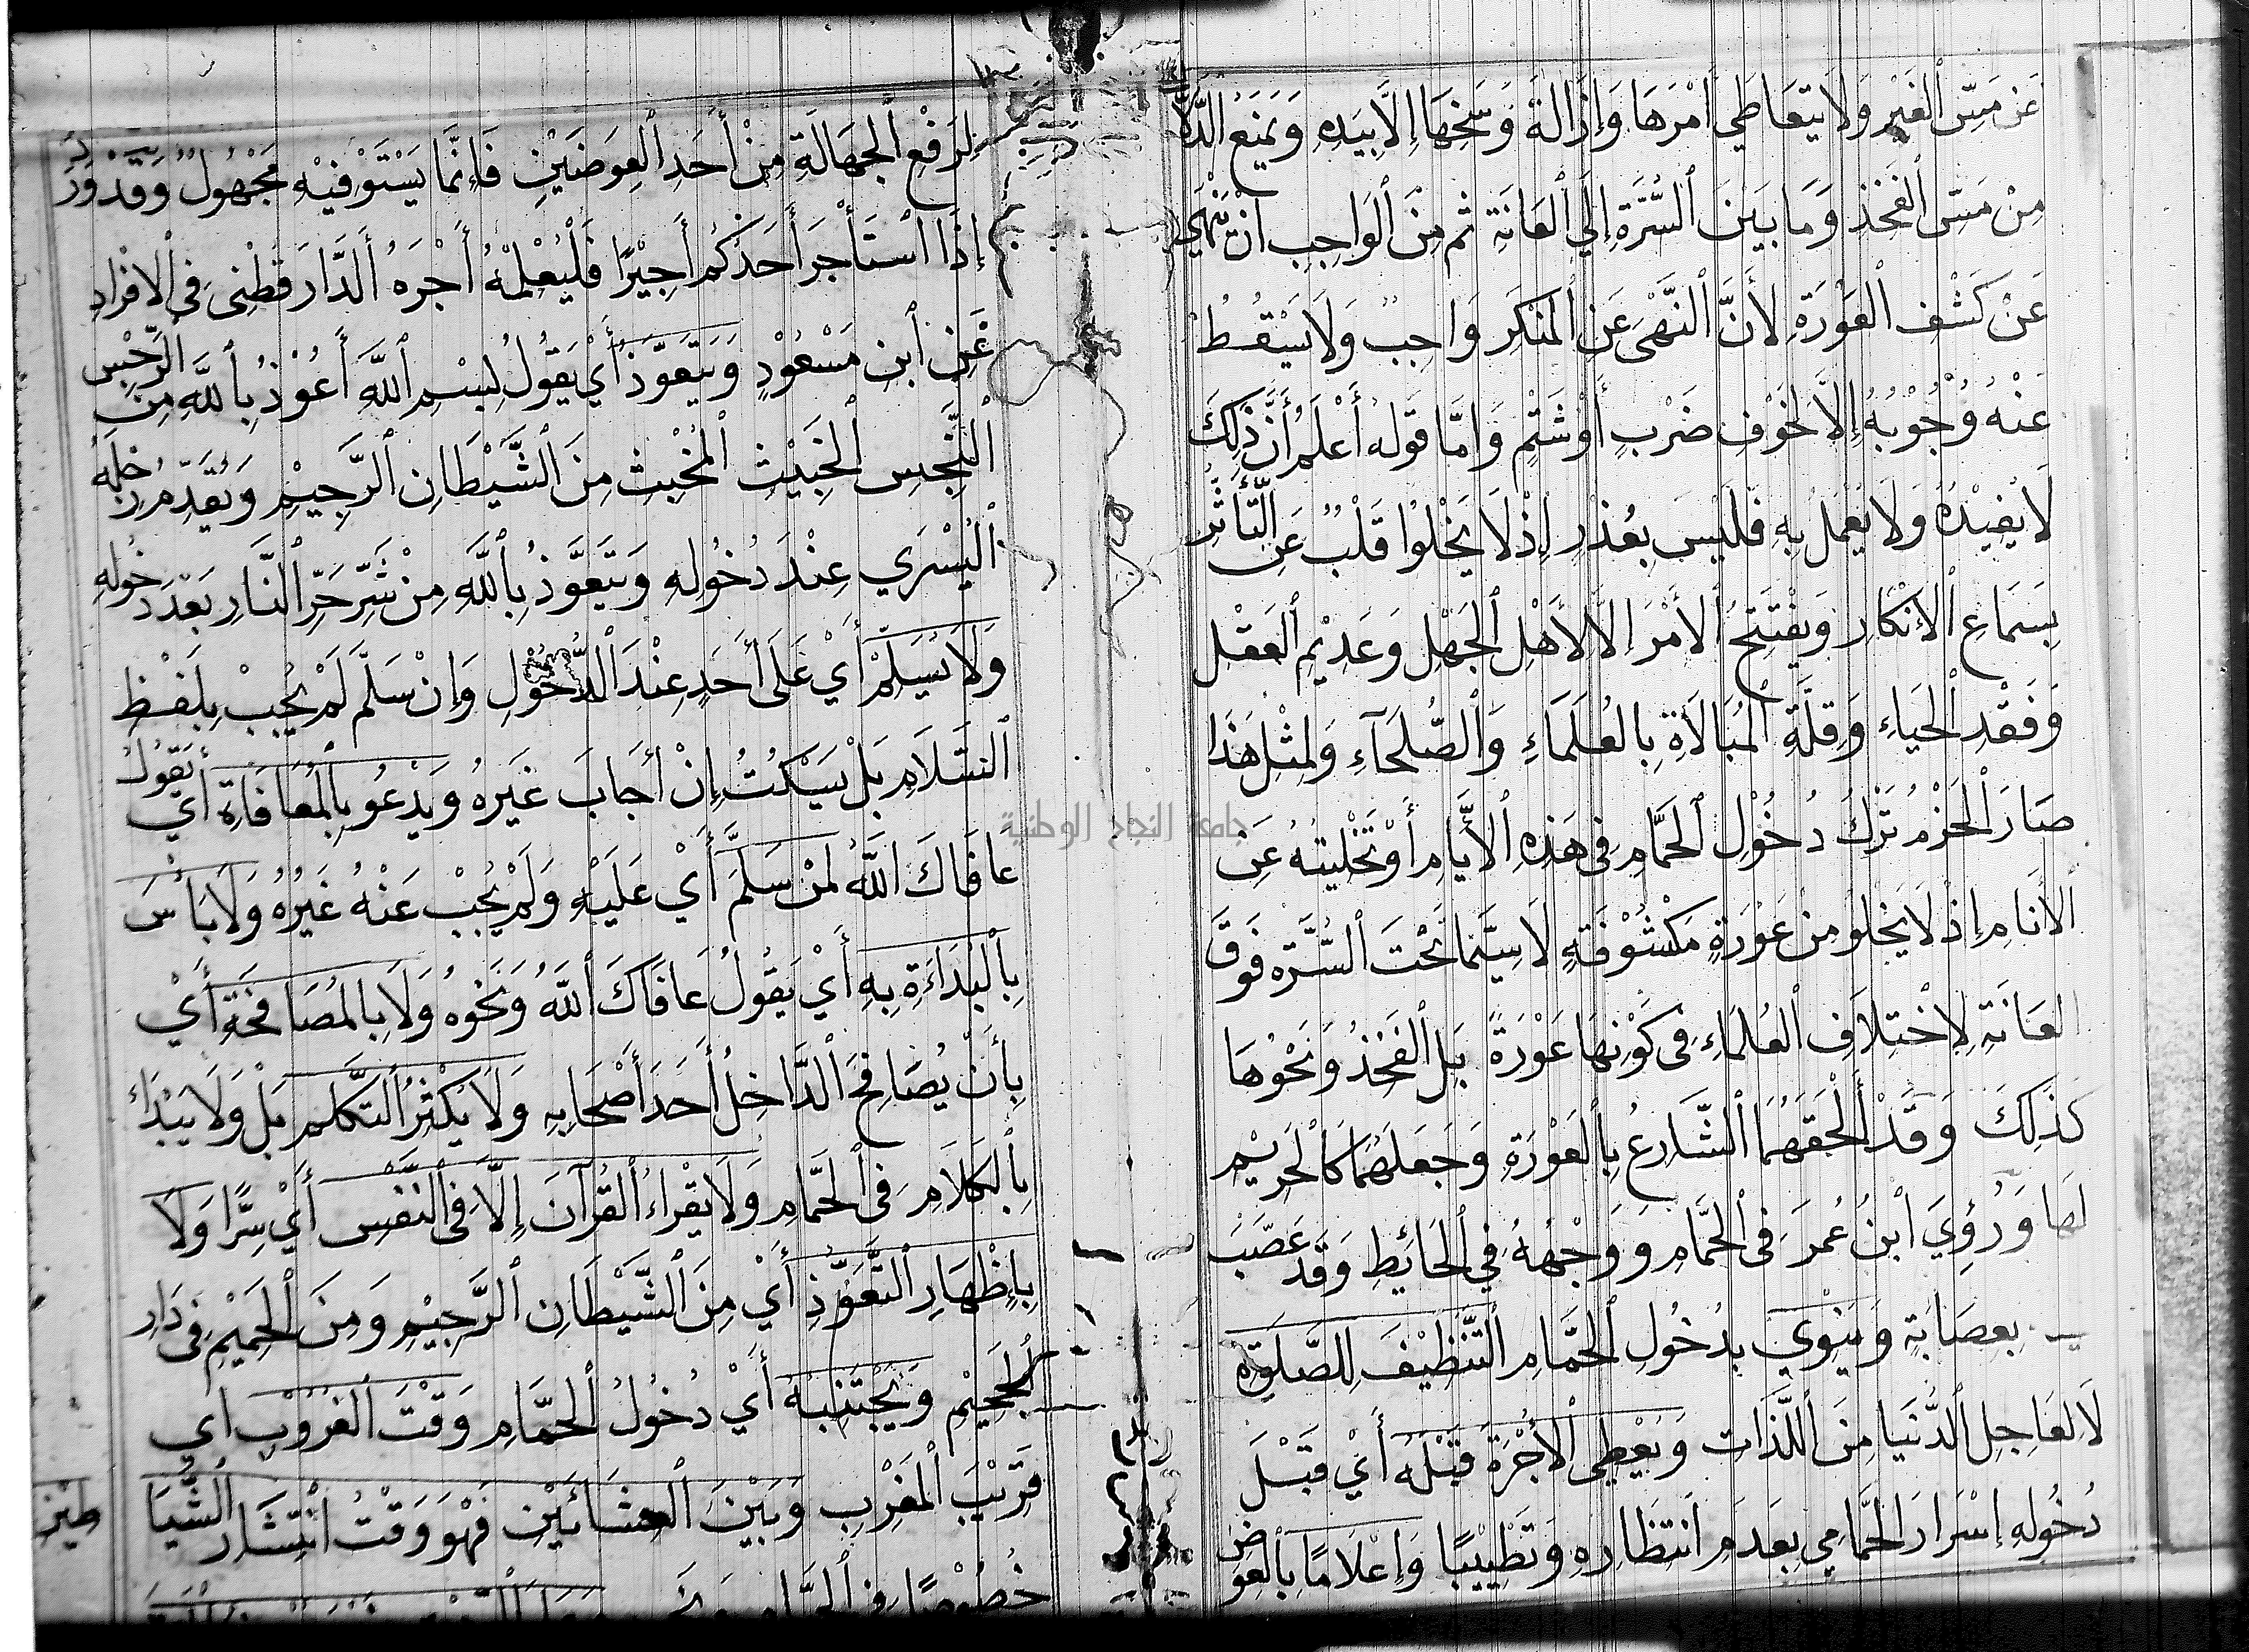 عَن مَسِّ الغَيْرِ وَلَا يَتَعَاطَي أَمْرَهَا وَإِزَالَةَ وَسَخِهَا إِلَّا بِيَدِهِ وَيَمْنَعُ الدَّلَّاكَ
مِنْ مَسِّ الفَخْذِ وَمَا بَيْنَ السُّرَّةِ إِلَي العَانَةِ ثُم مِنَ الوَاجِبِ انْ يَنْهَي
عَنْ كَشْفِ العَوْرَةِ لِأَنَّ النَّهْيَ عَنِ المُنْكَرِ وَاجِبٌ وَلَا يَسْقُطُ
عَنْهُ وُجُوْبُهُ إِلَّا لِخَوْفِ ضَرْبٍ أَوْ شَتْمٍ وَامَّا قَولُه أَعْلَمُ أَنَّ ذَلِكَ
لَا يُفِيْدُهُ وَلَا يُعْمَلُ بِهِ فَلَيْسَ بِعُذْرٍ إِذْ لَا يَخْلُوا قَلْبٌ عَنِ التَّأَثُّرِ
بِسَمَاعِ الْإِنْكَارِ وَيفْتَتِحُ الأَمْرَ الَّا لأَهْلِ الجَهْلِ وَعَدِيْمِ العَقْلِ
وَفَقْدِ الحَيَاءِ وَقِلَّةِ المُبَالَاةِ بِالعُلَمَاءِ وَالصُّلَحَآءِ وَلِمِثْلِ هَذَا
صَارَ الحَزْمُ تَرْكَ دُخُوْلِ الحَمَّامِ فِي هَذِهِ الأَيَّامِ أَوْ تَخْلِيَتَهُ عَنِ
الأَنَامِ إِذْ لَا يَخْلُو مِنْ عَوْرَةٍ مَكْشُوْفَةٍ لَا سِيَّمَا تَحْتَ السُّرَّةِ فَوقَ
العَانَةِ لِاخْتِلَافِ العُلَمَاءِ فِي كَوْنِهَا عَوْرَةً بَلِ الفَخْذُ وَنَحْوُهَا
كَذَلِكَ وَقَدْ أَلْحَقَهُمَا الشَّارِعُ بِالعَوْرَةِ وَجَعَلَهُمَا كَالحَرِيْمِ
لَهَا وَرُؤِيَ ابْنُ عُمَرَ فِي الحَمَّامِ وَوَجْهُهُ فِي الحَائِطِ وَقَد عَصَّبَ
بِعِصَابَةٍ وَيَنْوِي بِدُخُولِ الحَمَّامِ التَّنْظِيْفَ لِلصَّلٰوةِ
لَا لِعَاجِلِ الدُّنْيَا مِنَ اللَّذَّات وَيُعْطِي الأُجْرَةَ قَبْلَهُ أَيْ قَبْلَ
دُخُولِهِ إِسْرَارَ الحَمَّامِي بِعَدَمِ انتِظَارِهِ وَتَطْيِيْبًا وَإِعْلَامًا بِالعِوَضِ
لِرَفْعِ الجَهَالَةِ مِنْ أَحَدِ العِوَضَيْنِ فَإِنَّمَا يَسْتَوْفِيْهِ مَجْهُوْلٌ وَقَد وَرَدَ
إِذَا اسْتَأْجَرَ أَحَدُكُمْ أَجِيْرًا فَلْيُعْلِمْهُ أَجْرَهُ الدَّارَقُطْنِي فِي الافْرَادِ
عَنِ ابْنِ مَسْعُوْدٍ وَيَتَعَوَّذُ أَيْ يَقُوْلُ بِسْمِ اللَّهِ أَعُوْذُ بِاللَّهِ مِنَ الرِّجْسِ
النِّجِسِ الخَبِيْثِ المُخْبِثِ مِنَ الشَّيْطَانِ الرَّجِيْمِ وَيُقَدِّمُ رِجْلَهُ
اليُسْرَي عِنْدَ دُخُوْلِهِ وَيَتَعَوَّذُ بِاللَّهِ مِنْ شَرِّ حَرِّ النَّارِ بَعْدَ دُخُولِهِ
وَلَا يُسَلِّمُ أَيْ عَلَى أَحَدٍ عِنْدَ الدُّخُوْلِ وَإِنْ سَلَّمَ لَمْ يُجِبْ بِلَفْظِ
السَّلَامِ بَلْ يَسْكُتُ إِنْ أَجَابَ غَيْرُهُ وَيَدْعُو بِالمُعَافَاةِ أَي يَقُوْلُ
عَافَاكَ اللَّهُ لِمَنْ سَلَّمَ أَيْ عَلَيْهِ وَلَمْ يُجِبْ عَنْهُ غَيْرُهُ وَلَا بَأْسَ
بِالبُدَاءَةِ بِهِ أَيْ يَقُوْلُ عَافَاكَ اللَّهُ وَنَحْوهُ وَلَا بِالمُصَافَحَةِ أَيْ
بِأَنْ يُصَافِحَ الدَّاخِلُ أَحَدَ أَصْحَابِهِ وَلَا يُكْثِرُ التَّكَلُّمَ بَلْ وَلَا يَبْدَاءُ
بِالكَلَامِ فِي الحَمَّامِ وَلَا يَقْرَاءُ القُرْآنَ إِلَّا فِي النَّفْسِ أَيْ سِرًّا وَلَا
بِإِظْهَارِ التَّعَوُّذِ أَيْ مِنَ الشَّيْطَانِ الرَّجِيْمِ وَمِنَ الحَمِيْمِ فِي دَارِ
الجَحِيْمِ وَيَجْتَنِبُهُ أَيْ دُخُوْلُ الحَمَّامِ وَقْتَ الغُرُوْبِ اي
قَرِيْبَ المَغْرِبِ وَبَيْنَ العِشَائَيْنِ فَهُوَ وَقْتُ انْتِشَارِ الشَّيَا
طِيْنِ
خُصُوْصًا فِي
جامعة النجاح الوطنية